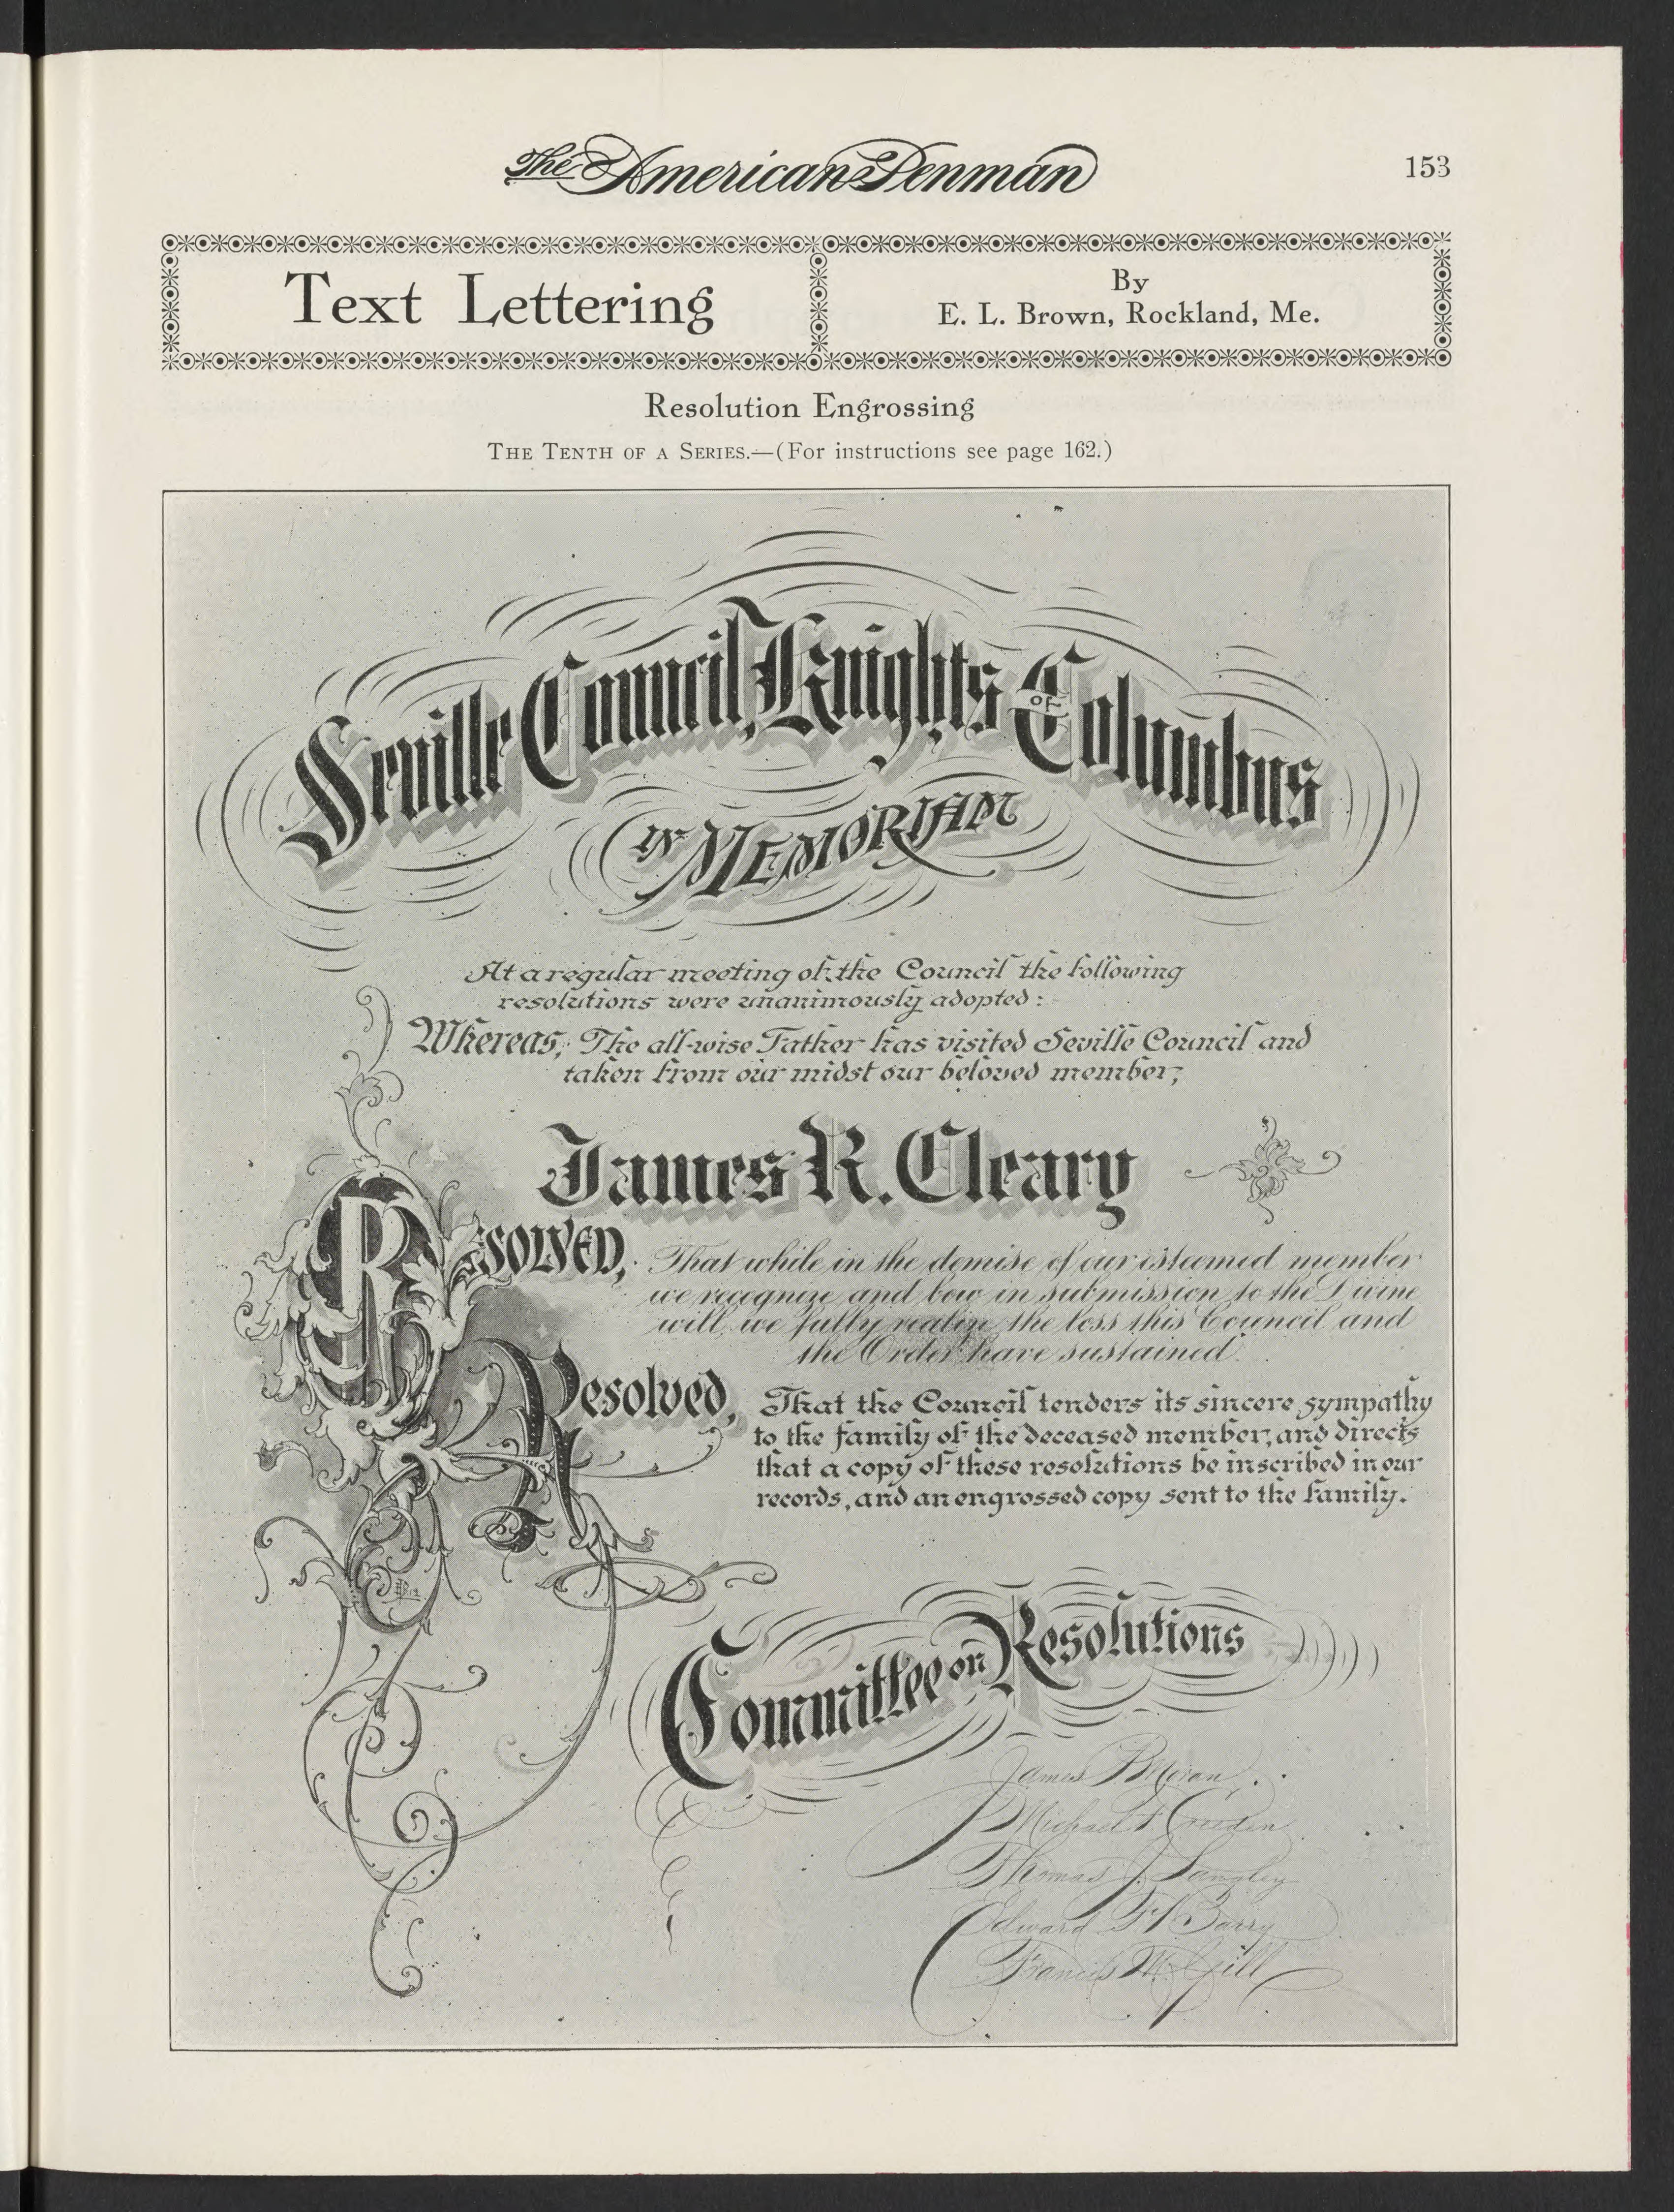 The American Penman
153
Text Lettering
By
E. L. Brown, Rockland, Me.
Resolution Engrossing
The Tenth of a Series.—(For instructions see page 162.)
Seville Council, Knights of Columbus
IN MEMORIAM
At a regular meeting of the Council the following
resolutions were unanimously adopted:
Whereas, The all-wise Father has visited Seville Council and
taken from our midst our beloved member,
James R. Cleary
RESOLVED, That while in the demise of our esteemed member
we recognize and bow in submission to the Divine
will, we fully realize the loss this Council and
the Order have sustained.
Resolved, That the Council tenders its sincere sympathy
to the family of the deceased member, and directs
that a copy of these resolutions be inscribed in our
records, and an engrossed copy sent to the family.
Committee on Resolutions
James P Moran
Michael F Creeden
Thomas J. Langley
Edward F Barry
Francis M Gill